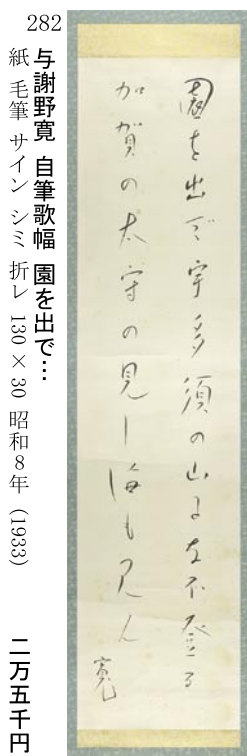 282
与謝野寛 自筆歌幅 園を出で…
紙 毛筆 サイン シミ 折レ 130×30 昭和8年 (1933)
二万五千円
園を出で宇多須の山になほ登る
加賀の太守の見し海も見ん
寛